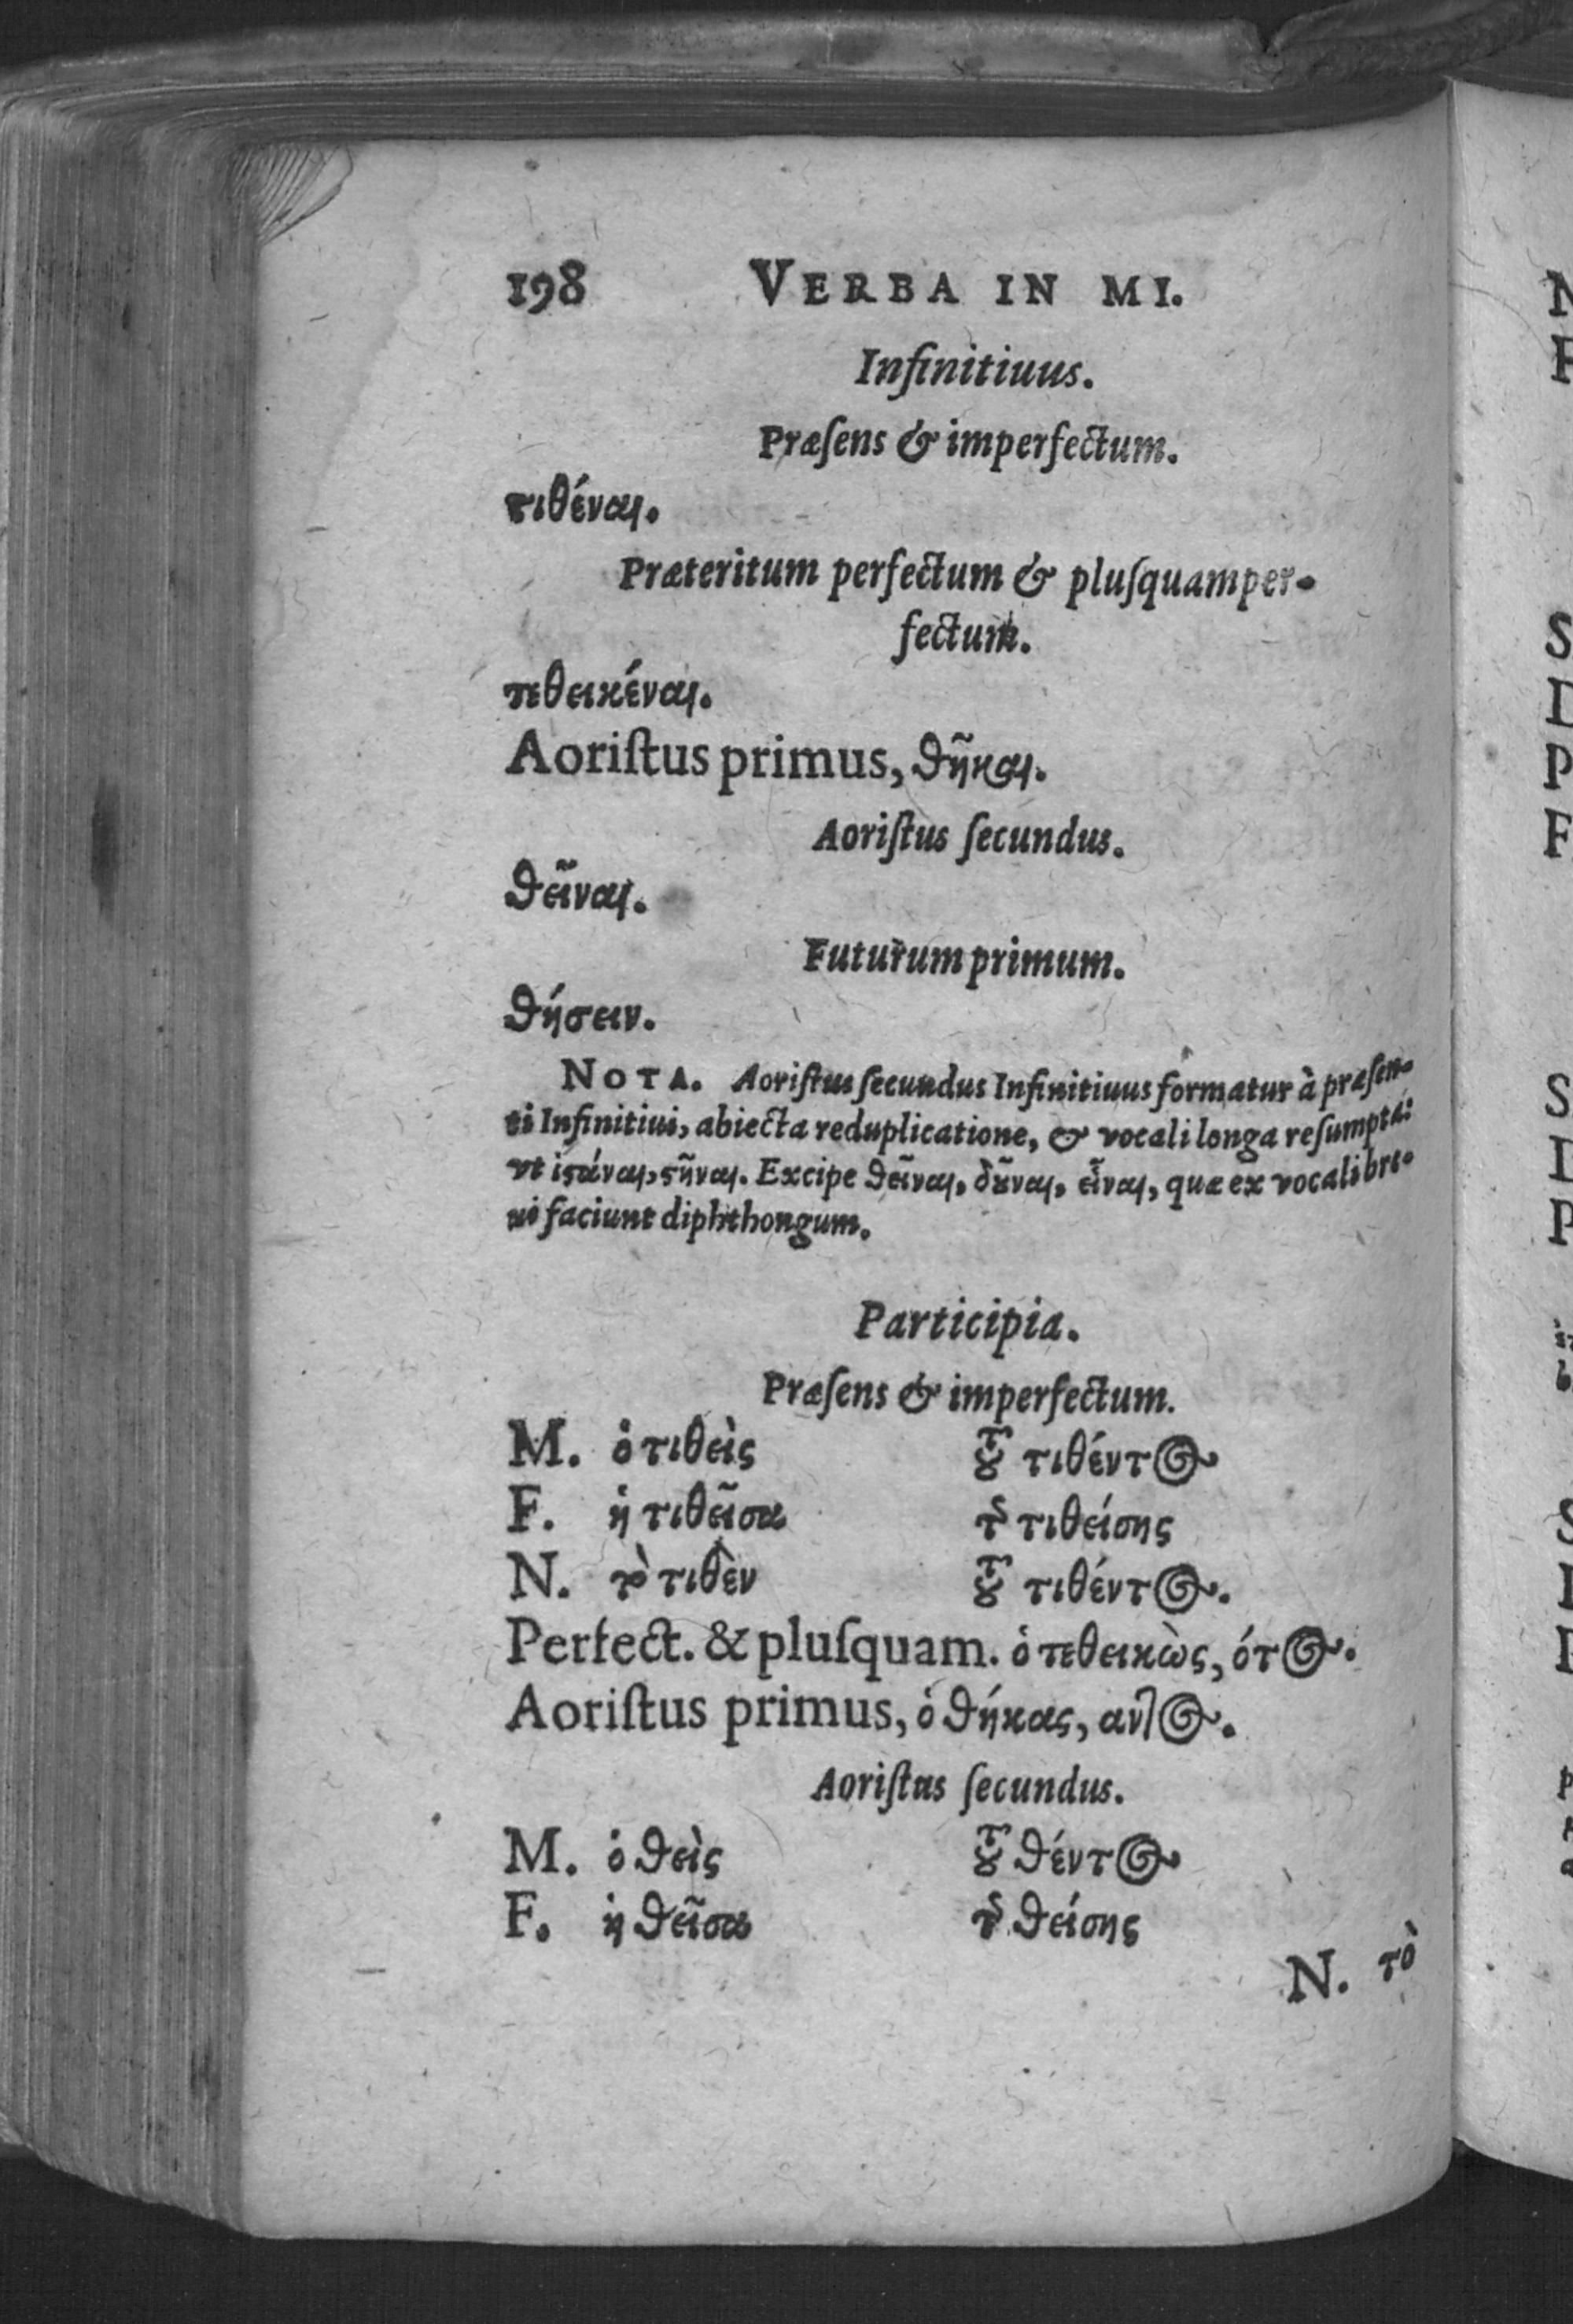 198 VERBA IN MI.
Infinitiuus.
Præſens & imperfectum.
τιθέναι.
Præteritum perfectum & pluſquamper-
fectum.
τεθεικέναι.
Aoriſtus primus, θῆκαι.
Aoriſtus ſecundus.
θεῖναι.
Futurum primum.
θήσειν.
NOTA. Aoriſtus ſecundus Infinitiuus formatur à præſen-
ti Infinitiui, abiecta reduplicatione, & vocali longa reſumpta:
vt ἱϛάναι, ϛῆναι. Excipe θεῖναι, δοῦναι, εἷναι, quæ ex vocali bre-
ui faciunt diphthongum.
Participia.
Præſens & imperfectum.
M. ὁ τιθεὶς τοῦ τιθέντος
F. ἡ τιθεῖσα τῆς τιθείσης
N. τὸ τιθὲν τοῦ τιθέντος.
Perfect. & pluſquam. ὁ τεθεικὼς, ότος.
Aoriſtus primus, ὁ θήκας, αντος.
Aoriſtus ſecundus.
M. ὁ θεὶς τοῦ θέντος
F. ἡ θεῖσα τῆς θείσης
N. τὸ